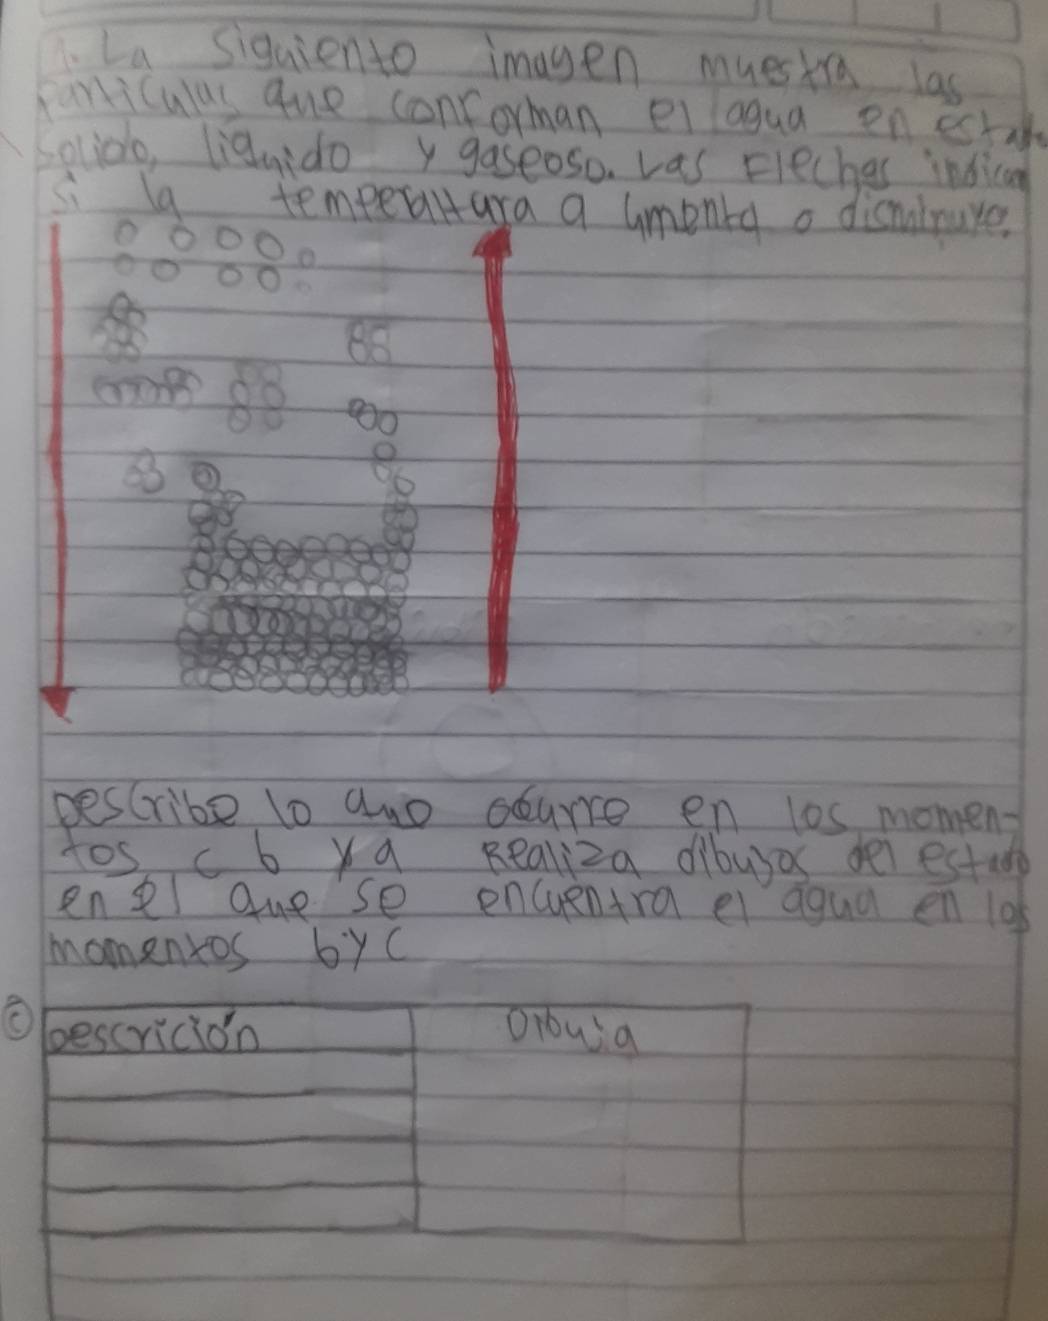 1. La siguiento imagen muestra las
particulas que conforman el agua en estado
solido, liquido y gaseoso. Las Flechas indican
si la temperattura aumenta o disminuye.
Describe lo que ocurre en los momen-
tos c b y a Realiza dibujos del estado
en el que se encuentra el agua en los
momentos b y c
c Descrición Dibuja